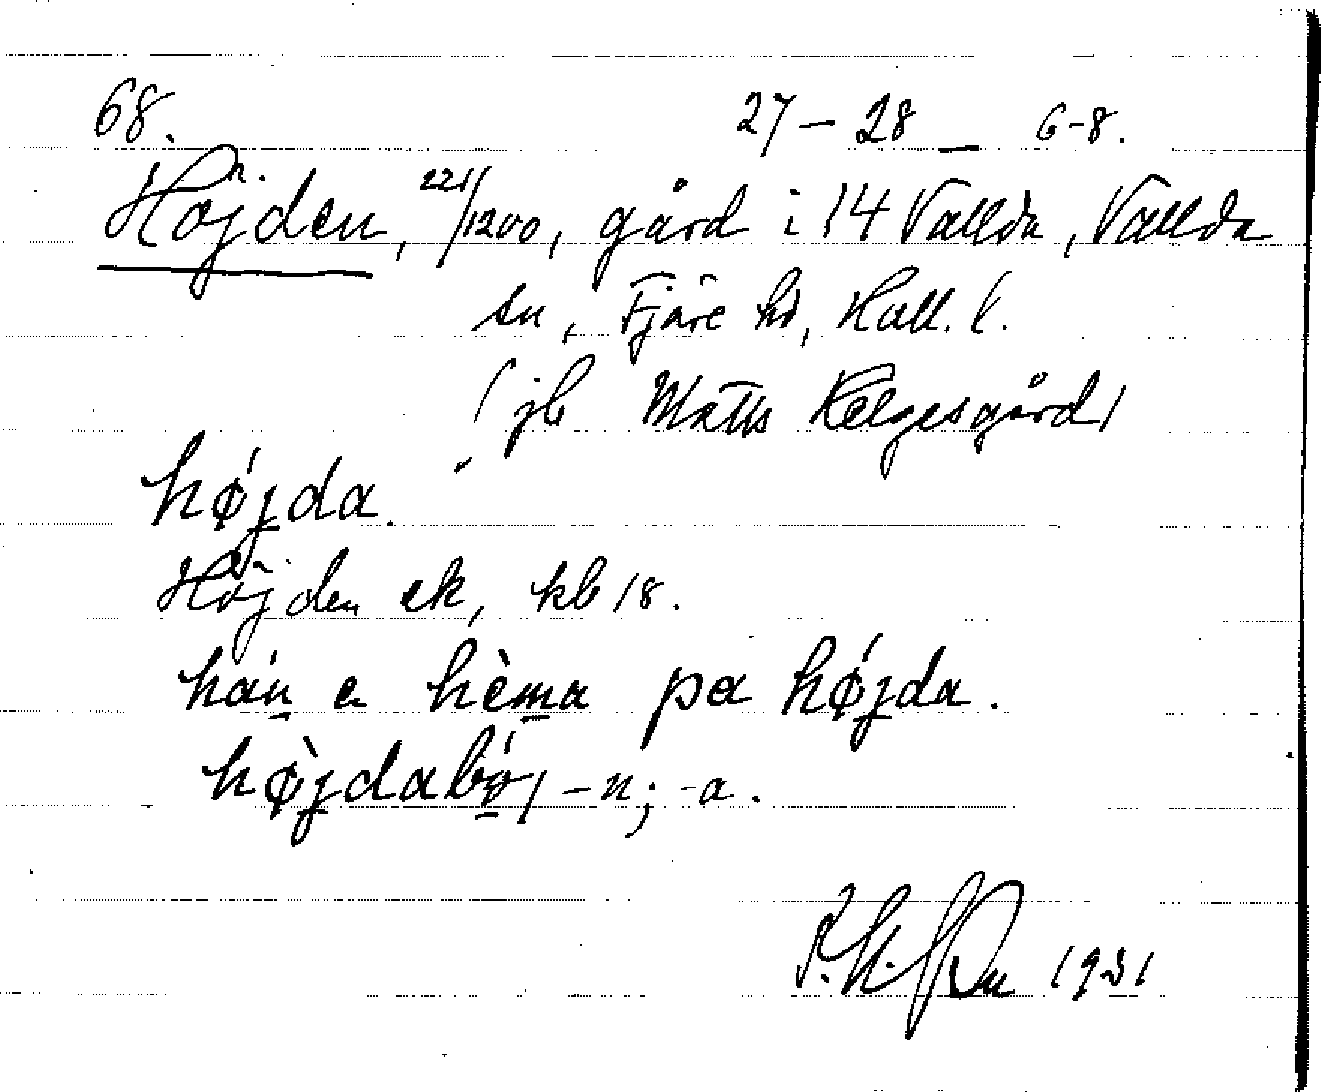 68. 27 – 28 – 6-8.
Höjden, 221/1200, gård i 14 Vallda, Vallda
sn, Fjäre hd, Hall. l.
(jb Matts Helgesgård)
højda.
Höjden ek, kb 18.
hán e hèma pa højda.
hø̀jdabó, -n; -a.
1931